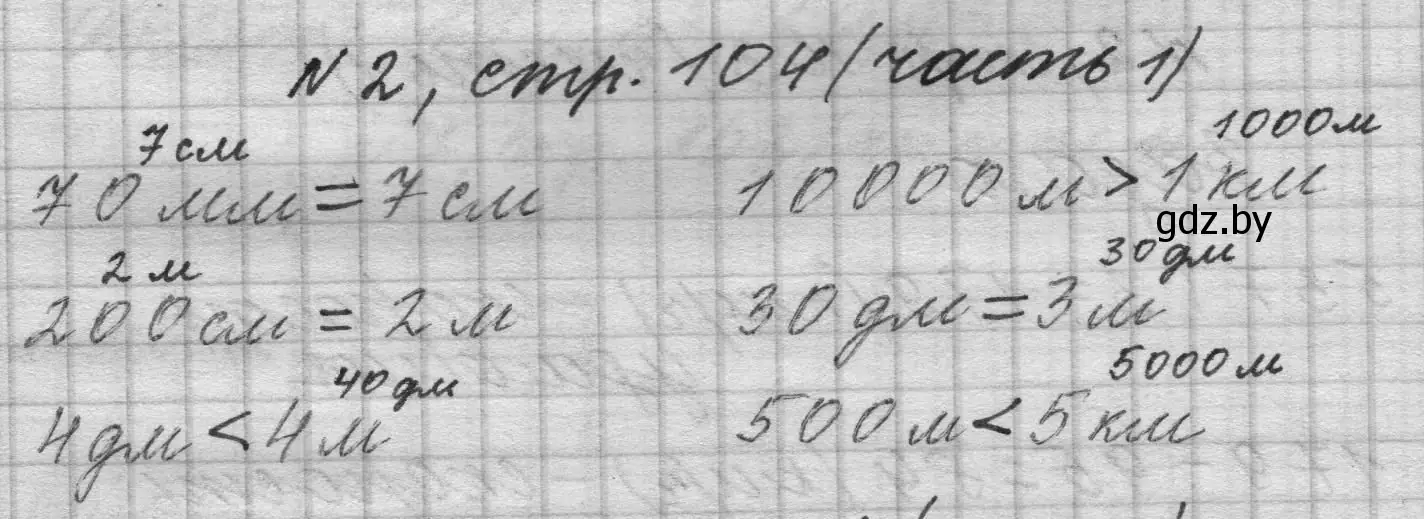 N 2, стр. 104 (часть 1)
7 см
70 мм = 7 см
2 м
200 см = 2 м
40 дм
4 дм < 4 м
1000 м
10000 м > 1 км
gdz.by
30 дм
30 дм = 3 м
5000 м
500 м < 5 км